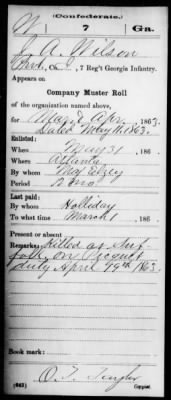 (Confederate.)
W 7 Ga.
J. A. Wilson
Pvt, Co. , 7 Reg't Georgia Infantry.
Appears on
Company Muster Roll
of the organization named above,
for Mar & Apr, 1863.
Dated May 11, 1863.
Enlisted:
When May 31, 186 .
Where Atlanta
By whom Maj
Period 12 mo
Last paid:
By whom Holliday
To what time March 1, 186 .
Present or absent
Remarks: Killed at Suf-
folk on Picquet
duty April 1863.
Book mark:
(642) Copyist.